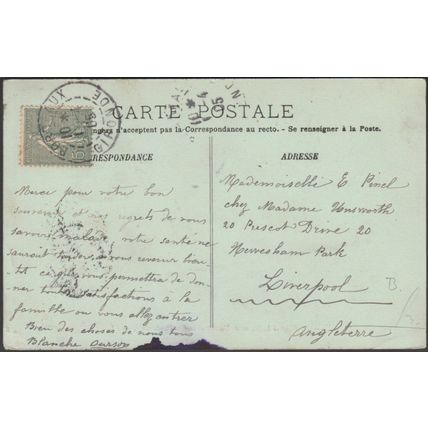 CARTE POSTALE
n'acceptent pas la Correspondance au recto. - Se renseigner à la Poste.
RRESPONDANCE
ADRESSE
Merci pour votre bon
souvenir et nos regrets de vous
savoir malade, votre santé ne
saurait tarder à vous revenir bien
tôt ce qui vous permettra de don
ner toute satisfactions à la
famille où vous allez entrer
Bien des choses de nous tous
Blanche
Mademoiselle E. Pinel
chez Madame Unsworth
20 Prescot Drive 20
Newsham Park
Liverpool
Angleterre
B.